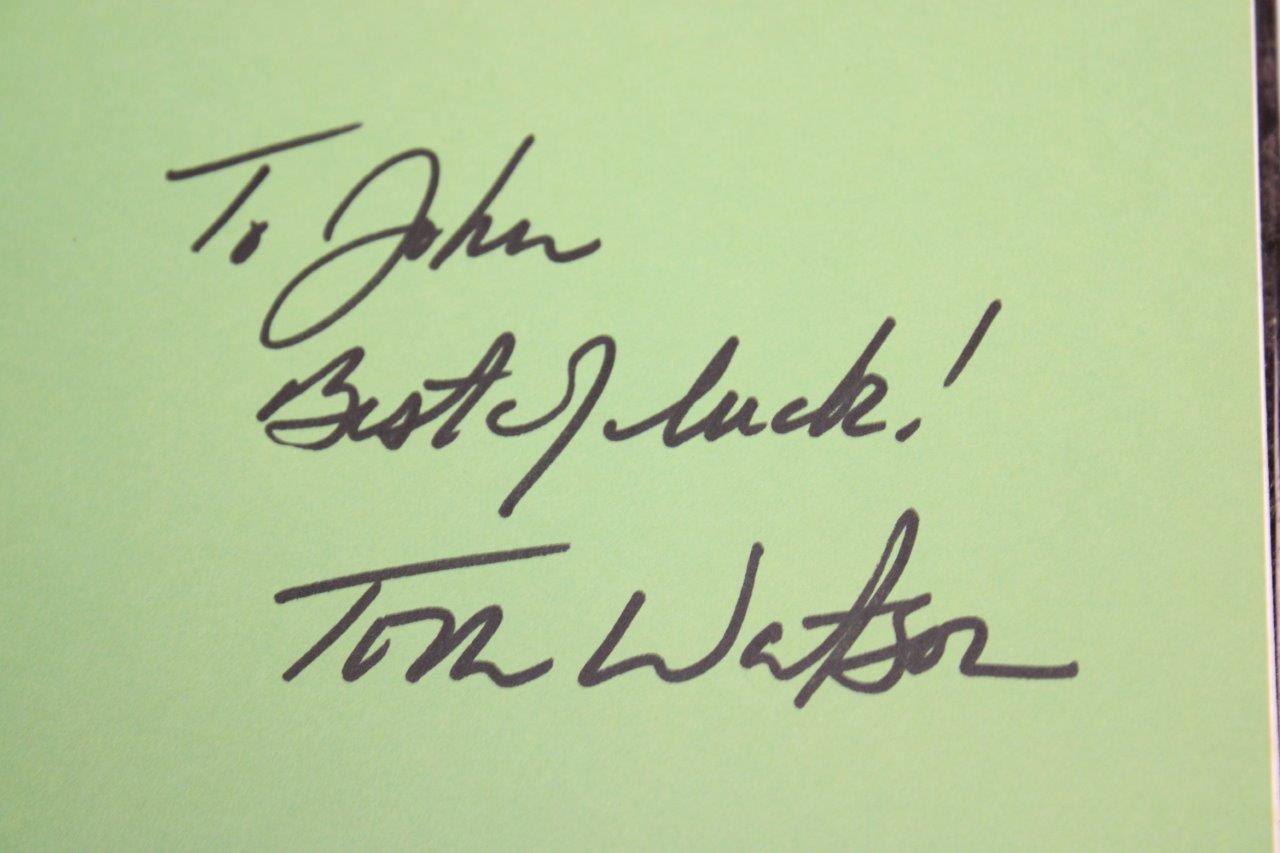 To John
Best of luck!
Tom Watson